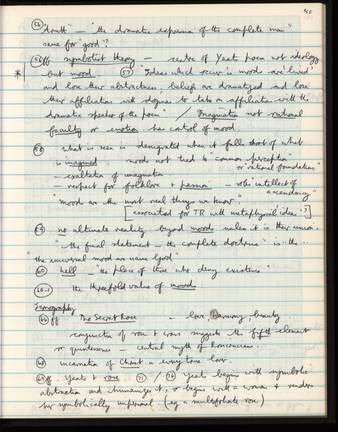 (56) "death" — "the dramatic expression of the complete man"
name for "good"?
56ff symbolist theory — centre of Yeats' poem not ideology
* but mood. (57) "Ideas which occur in moods are lived
and lose their abstractness, beliefs are dramatized and lose
their affiliation with dogma to take on affiliation with the
dramatic speaker of the poem" / Imagination not rational
faculty or emotion has control of mood
(58) what is seen is denigrated when it falls short of what
is imagined. moods not tied to common perception
or rational foundations
— exaltation of imagination
— respect for folklore + passion — who intellect of
ascendancy"
moods are the most real things we know."
[associated for TR with metaphysical ideas?]
(59) no ultimate reality beyond moods unless it is their union
"the final statement — the complete doctrine" is "the
"the universal mood we name God"
(60) hell — the place of those who deny existence
60-1 the threefold value of moods
Iconography
(64)ff The Secret Rose — love, Harmony, beauty
conjunction of rose + cross suggests the fifth element
or quintessence central myth of Rosicrucians
(68) incarnation of Christ + every true love.
69ff. Yeats + rose (71) / (72) Yeats begins with symbolic
abstraction and humanizes it, or begins with a woman + renders
her symbolically impersonal (eg a multifoliate rose)